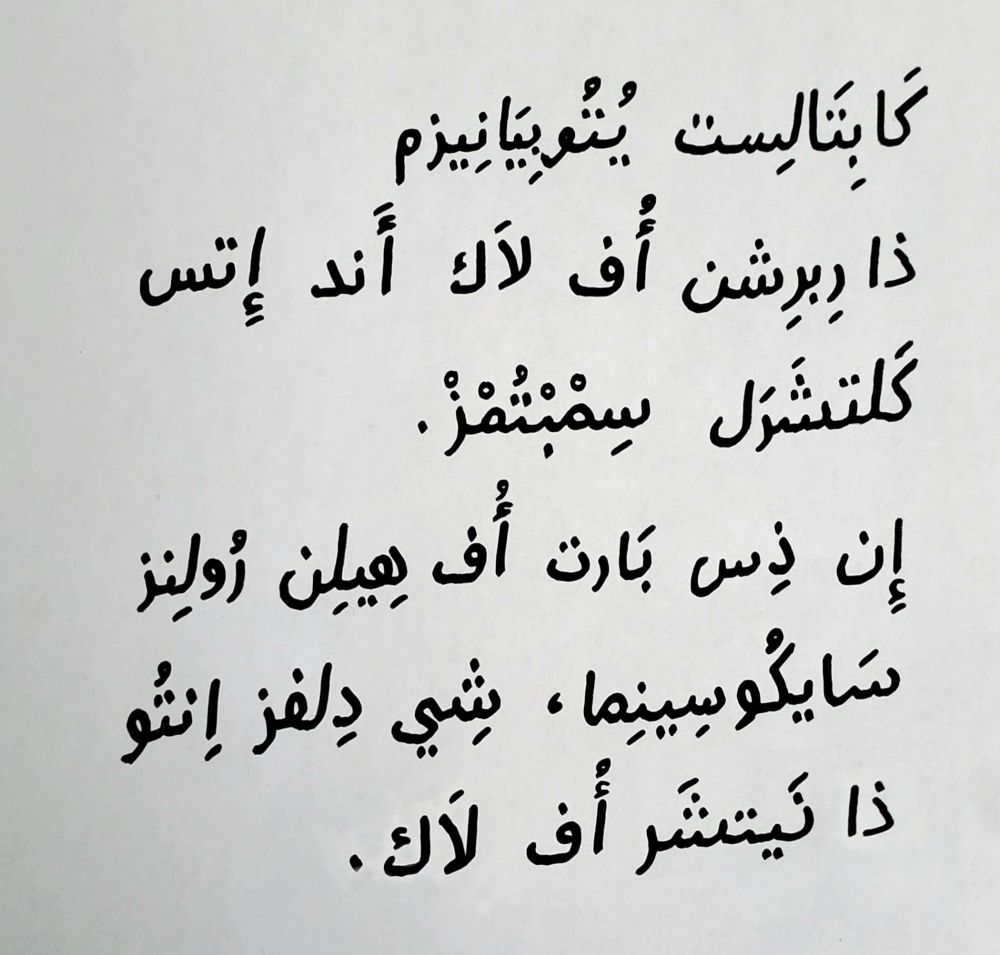 كَابِتَالِست يُتُوبِيَانِيزم
ذا رِبرِشن أُف لاَك أَند إِتس
كَلتشَرَل سِمْبْتُمْزْ.
إِن ذِس بَارت أُف هِيلِن رُولِنز
سَايكُوسِينِما، شِي دِلفز اِنتُو
ذا نَيتشَر أُف لاَك.